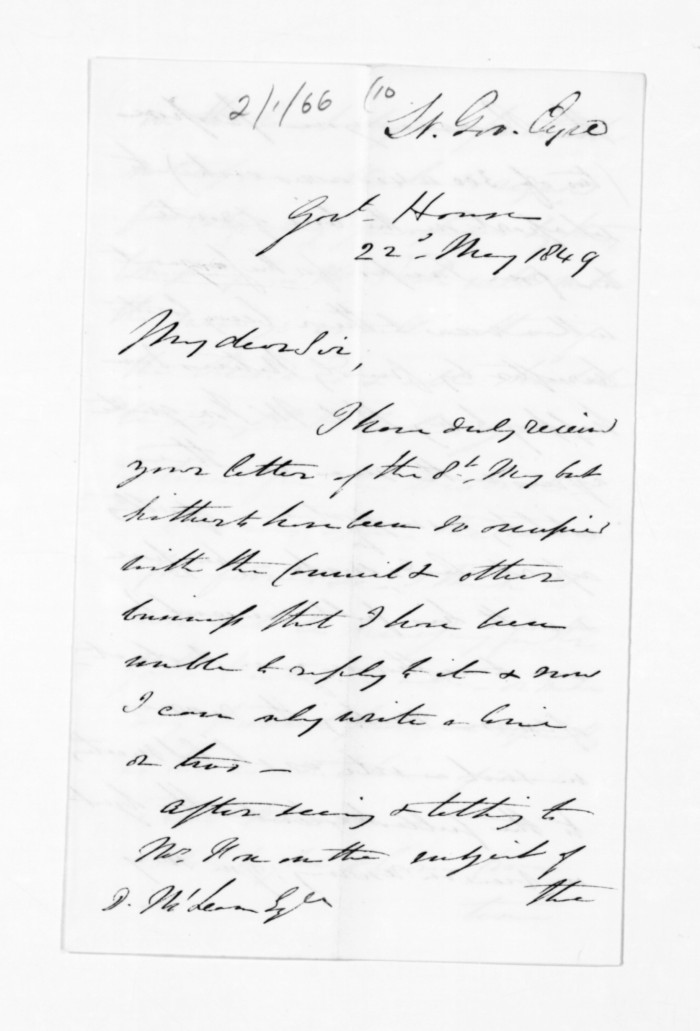 2/1/66 (10
Lt. Gov. Eyre
Govt. House
22d. May 1849
My dear Sir,
I have duly received
your letter of the 8th. May but
hitherto have been so occupied
with the Council & other
business that I have been
unable to reply to it & now
I can only write a line
or two —
After seeing & talking to
Mr. Fox on the subject of
the
D. McLean Esqre